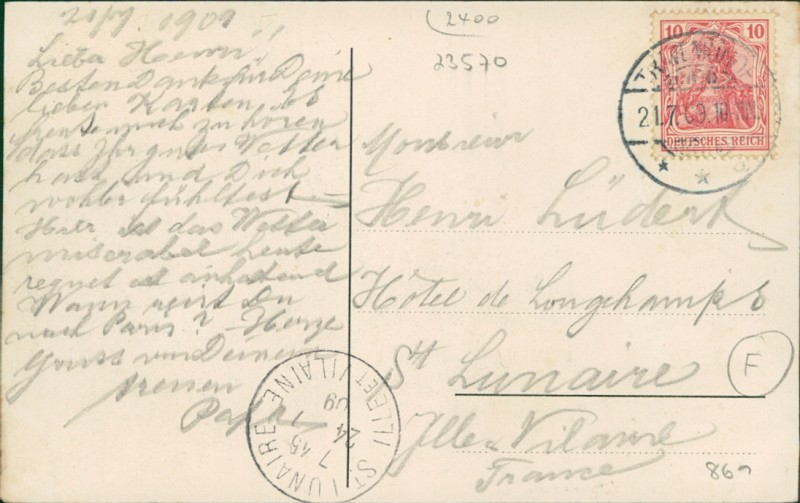 1909
Lieber Henri!
Besten Dank für Deine
lieben Karten. Es
freut mich zu hören
dass Ihr gutes Wetter
hast und Dich
wohler fühltest
Hier ist das Wetter
miserabel heute
regnet es anhaltend
Wann reist Du
nach Paris? Herzl
Gruss von Deinem
treuen
Papa
(2400
23570
10 10
DEUTSCHES REICH
21.7.09.10
Monsieur
Henri Lüders
Hôtel de Longchamps
St Lunaire
Ille & Vilaine
France
F
869
ST. LUNAIRE
ILLE ET VILAINE
7 45
24
7
09